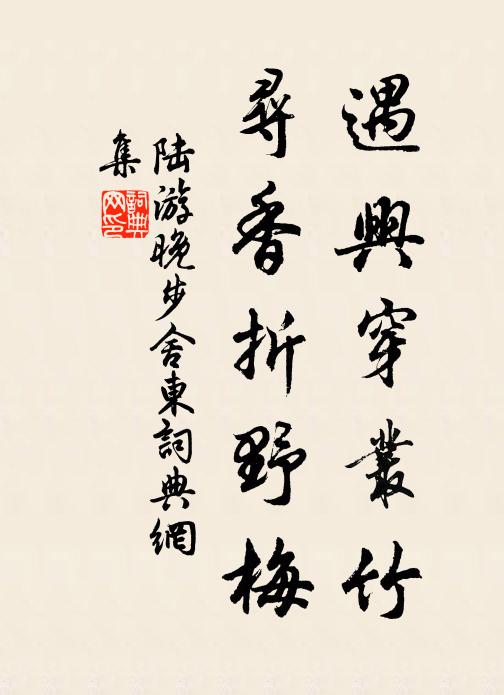 遇興穿叢竹
尋香折野梅
陸游晚步舍東詞典網
集
詞典
网印